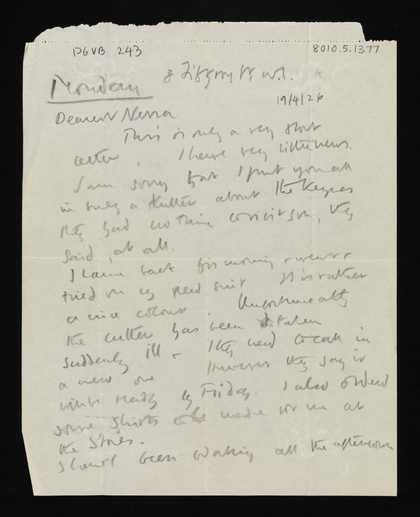 DGVB 243
8010.5.1377
8 Fitzroy St W.1.
Monday
19/4/26
Dearest Nessa
This is only a very short
letter, I have very little news.
I am sorry that I put you all
in such a flutter about the Keynes
they had nothing
said, at all.
I came back this morning & went &
tried on my new suit It is rather
a nice colour. Unfortunately
the cutter has been taken
suddenly ill & they had to call in
a new one However they say it
will be ready by Friday. I also ordered
some shirts to be made for me at
the Stores.
I have been working all the afternoon